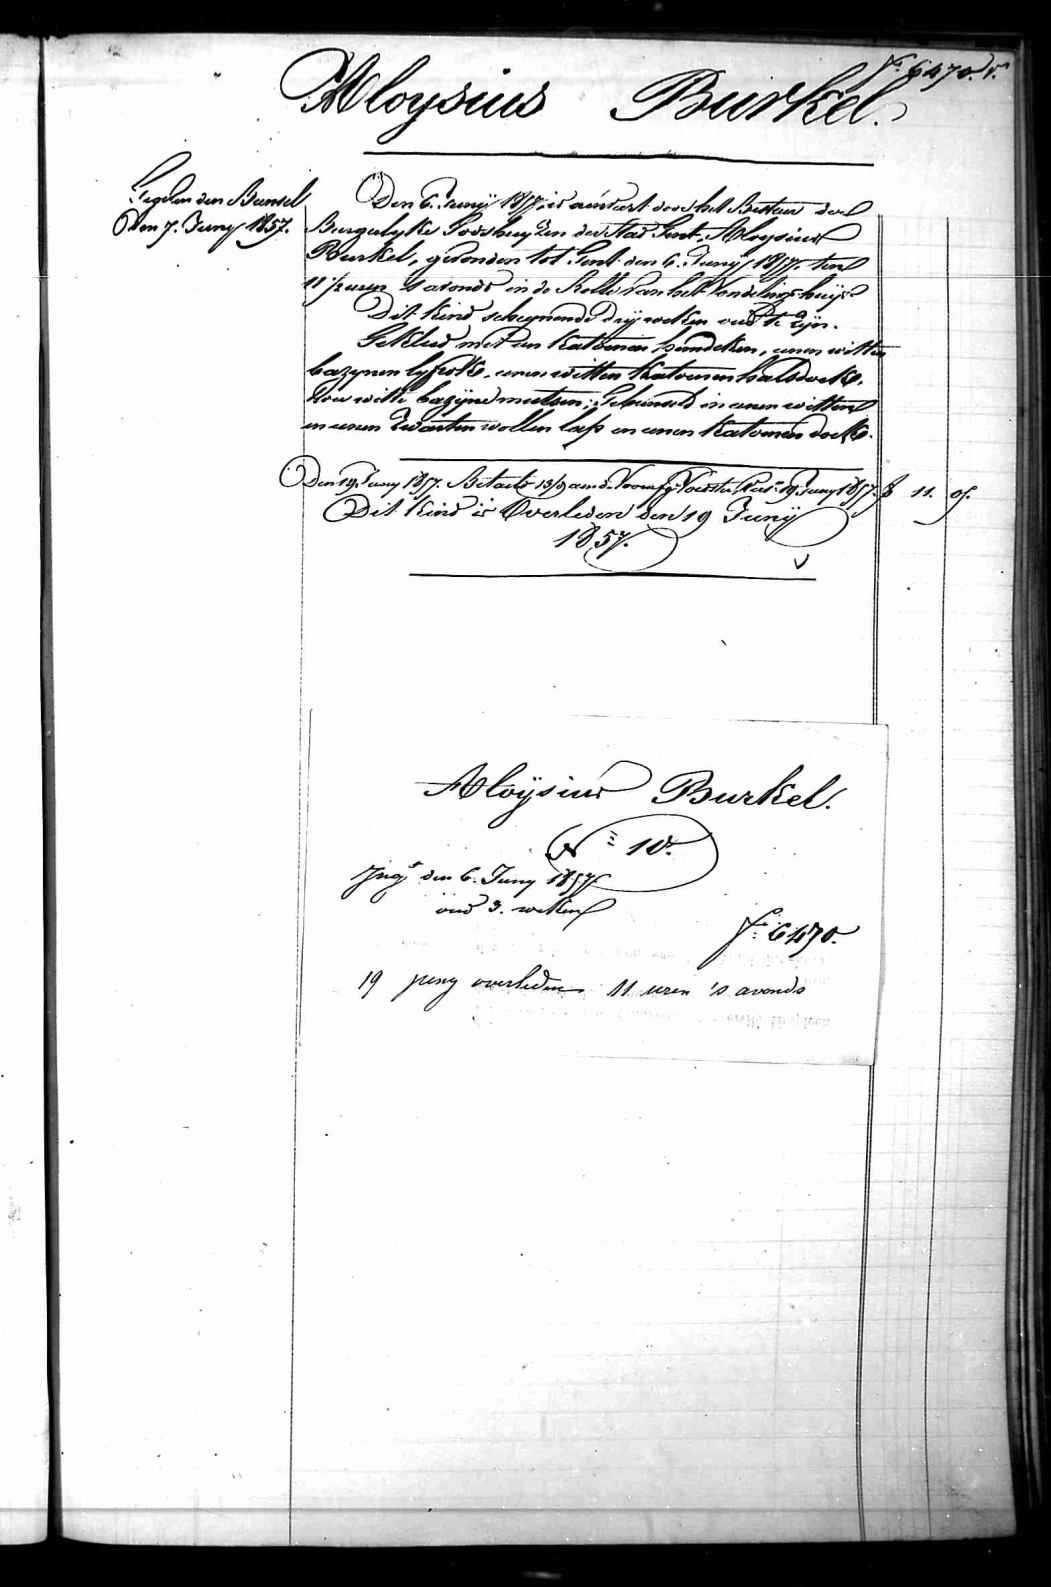 F.° 6470. v.°
Aloysius Burkel.
den Bundel
Den 7. Juny 1857.
Den 6. Junij 1857, is aanvaert door het Bestuur der
Burgerlyke Godshuyzen der Stad Gent, Aloysius
Burkel, gevonden tot Gent den 6. Junij 1857. ten
11 1/2 uren 's avonds in de Rolle van het Vondelingshuijs
Dit kind schynende drij weken oud te zijn.
Gekleed met een katoenen hemdeken, eenen witten
bazynen lyfrok, eenen witten katoenen halsdoek,
twee witte bazijne mutsen; Gebunseld in eenen witten
en eenen zwarten wollen lap en eenen katoenen doek.
Den 19 Juny 1857. Betaeld 13/9 aen de Voorn: Voedster 19 Juny 1857. f 11. 05.
Dit Kind is Overleden den 19 Junij
1857.
Aloÿsius Burkel.
N° 10.
Ing.t den 6. Juny 1857
oud 3. weken
F.° 6470.
19 juny overleden 11 uren 's avonds